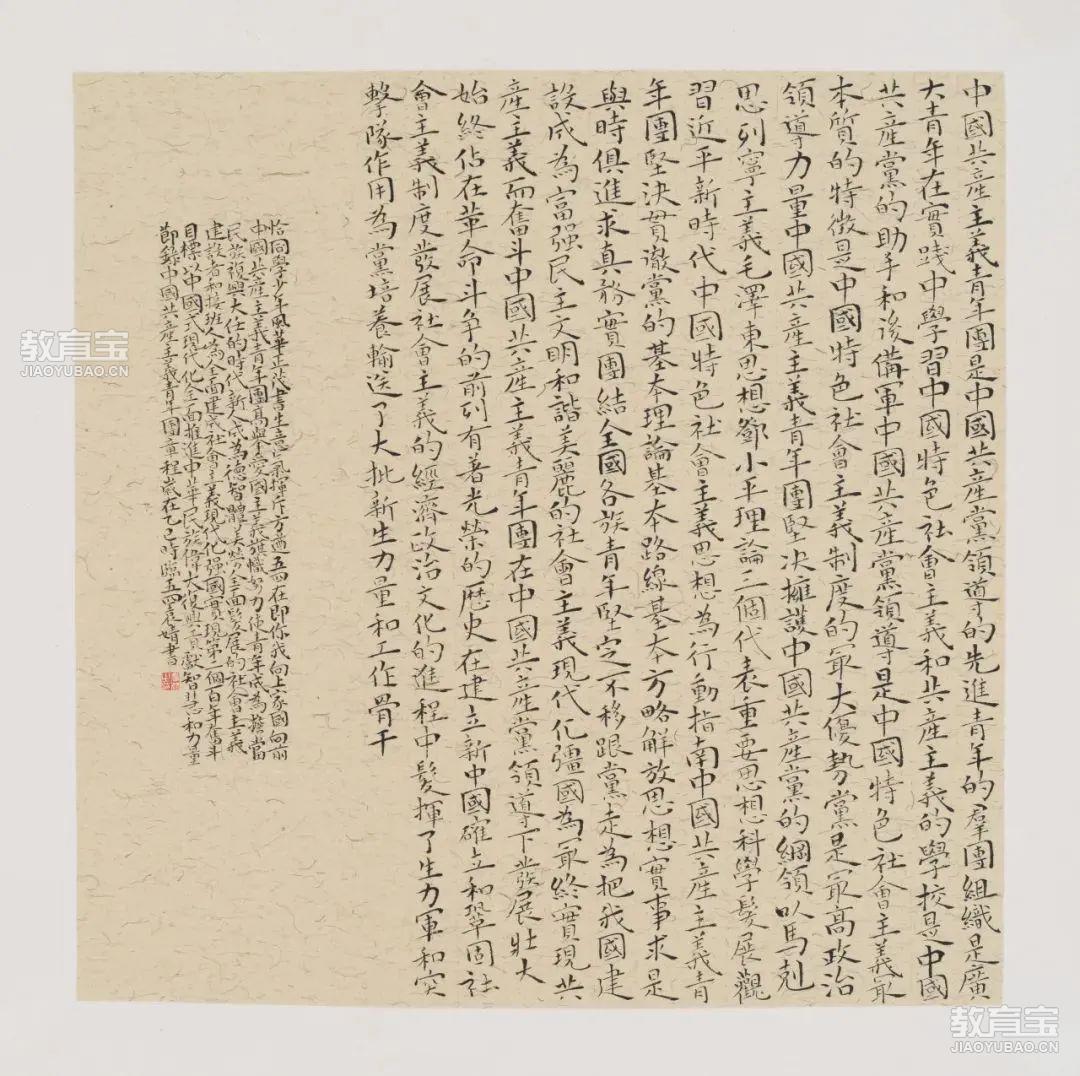 中國共產主義青年團是中國共產黨領導的先進青年的羣團組織是廣
大青年在實踐中學習中國特色社會主義和共產主義的學校是中國
共產黨的助手和後備軍中國共產黨領導是中國特色社會主義最
本質的特徵是中國特色社會主義制度的最大優勢黨是最高政治
領導力量中國共產主義青年團堅決擁護中國共產黨的綱領以馬剋
思列寧主義毛澤東思想鄧小平理論三個代表重要思想科學髮展觀
習近平新時代中國特色社會主義思想為行動指南中國共產主義青
年團堅決貫徹黨的基本理論基本路線基本方略解放思想實事求是
與時俱進求真務實團結全國各族青年堅定不移跟黨走為把我國建
設成為富强民主文明和諧美麗的社會主義現代化彊國為最終實現共
產主義而奮斗中國共產主義青年團在中國共產黨領導下發展壯大
始終佔在革命斗争的前列有著光榮的歷史在建立新中國確立和鞏固社
會主義制度發展社會主義的經濟政治文化的進程中髮揮了生力軍和突
擊隊作用為黨培養輸送了大批新生力量和工作骨干
恰同學少年風華正茂書生意氣揮斥方遒五四在即你我向上家國向前
中國共產主義青年團高舉愛國主義旗幟努力使青年成為擔當
民族復興大任的時代新人成為德智體美勞全面發展的社會主義
建設者和接班人為全面建成社會主義現代化强國實現第二個百年奮斗
目標以中國式現代化全面推進中華民族偉大復興貢獻智慧和力量
節錄中國共產主義青年團章程歲在乙巳時臨五四袁婧書
教育宝
JIAOYUBAO.CN
教育宝
JIAOYUBAO.CN